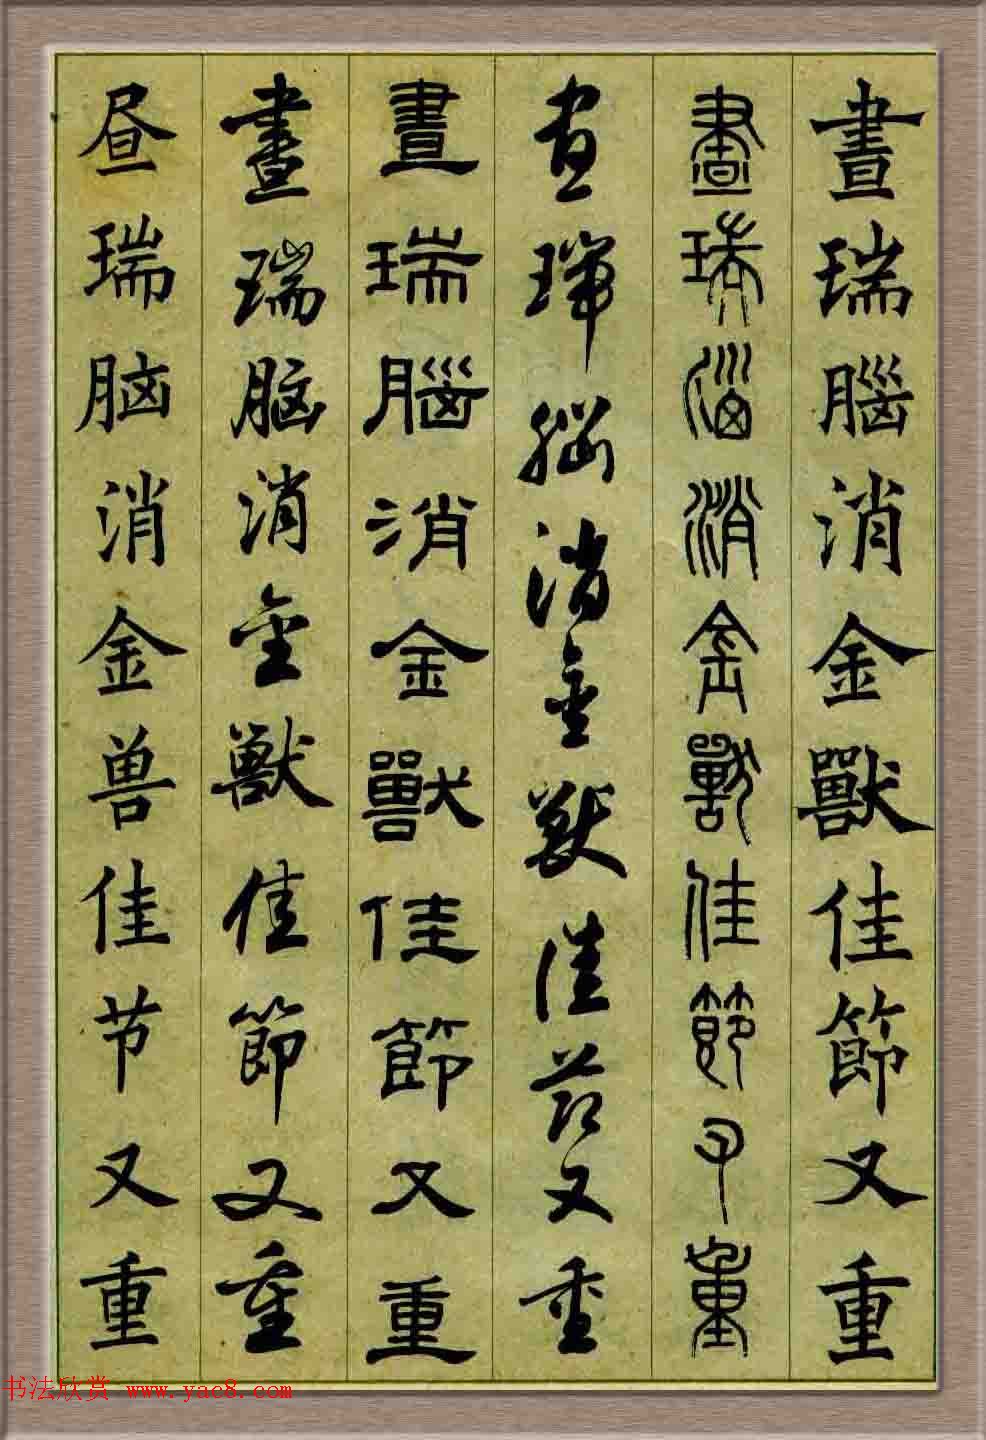 晝瑞腦消金獸佳節又重
晝瑞腦消金獸佳節又重
晝瑞腦消金獸佳節又重
晝瑞腦消金獸佳節又重
晝瑞脑消金獸佳節又重
昼瑞脑消金兽佳节又重
书法欣赏 www.yac8.com